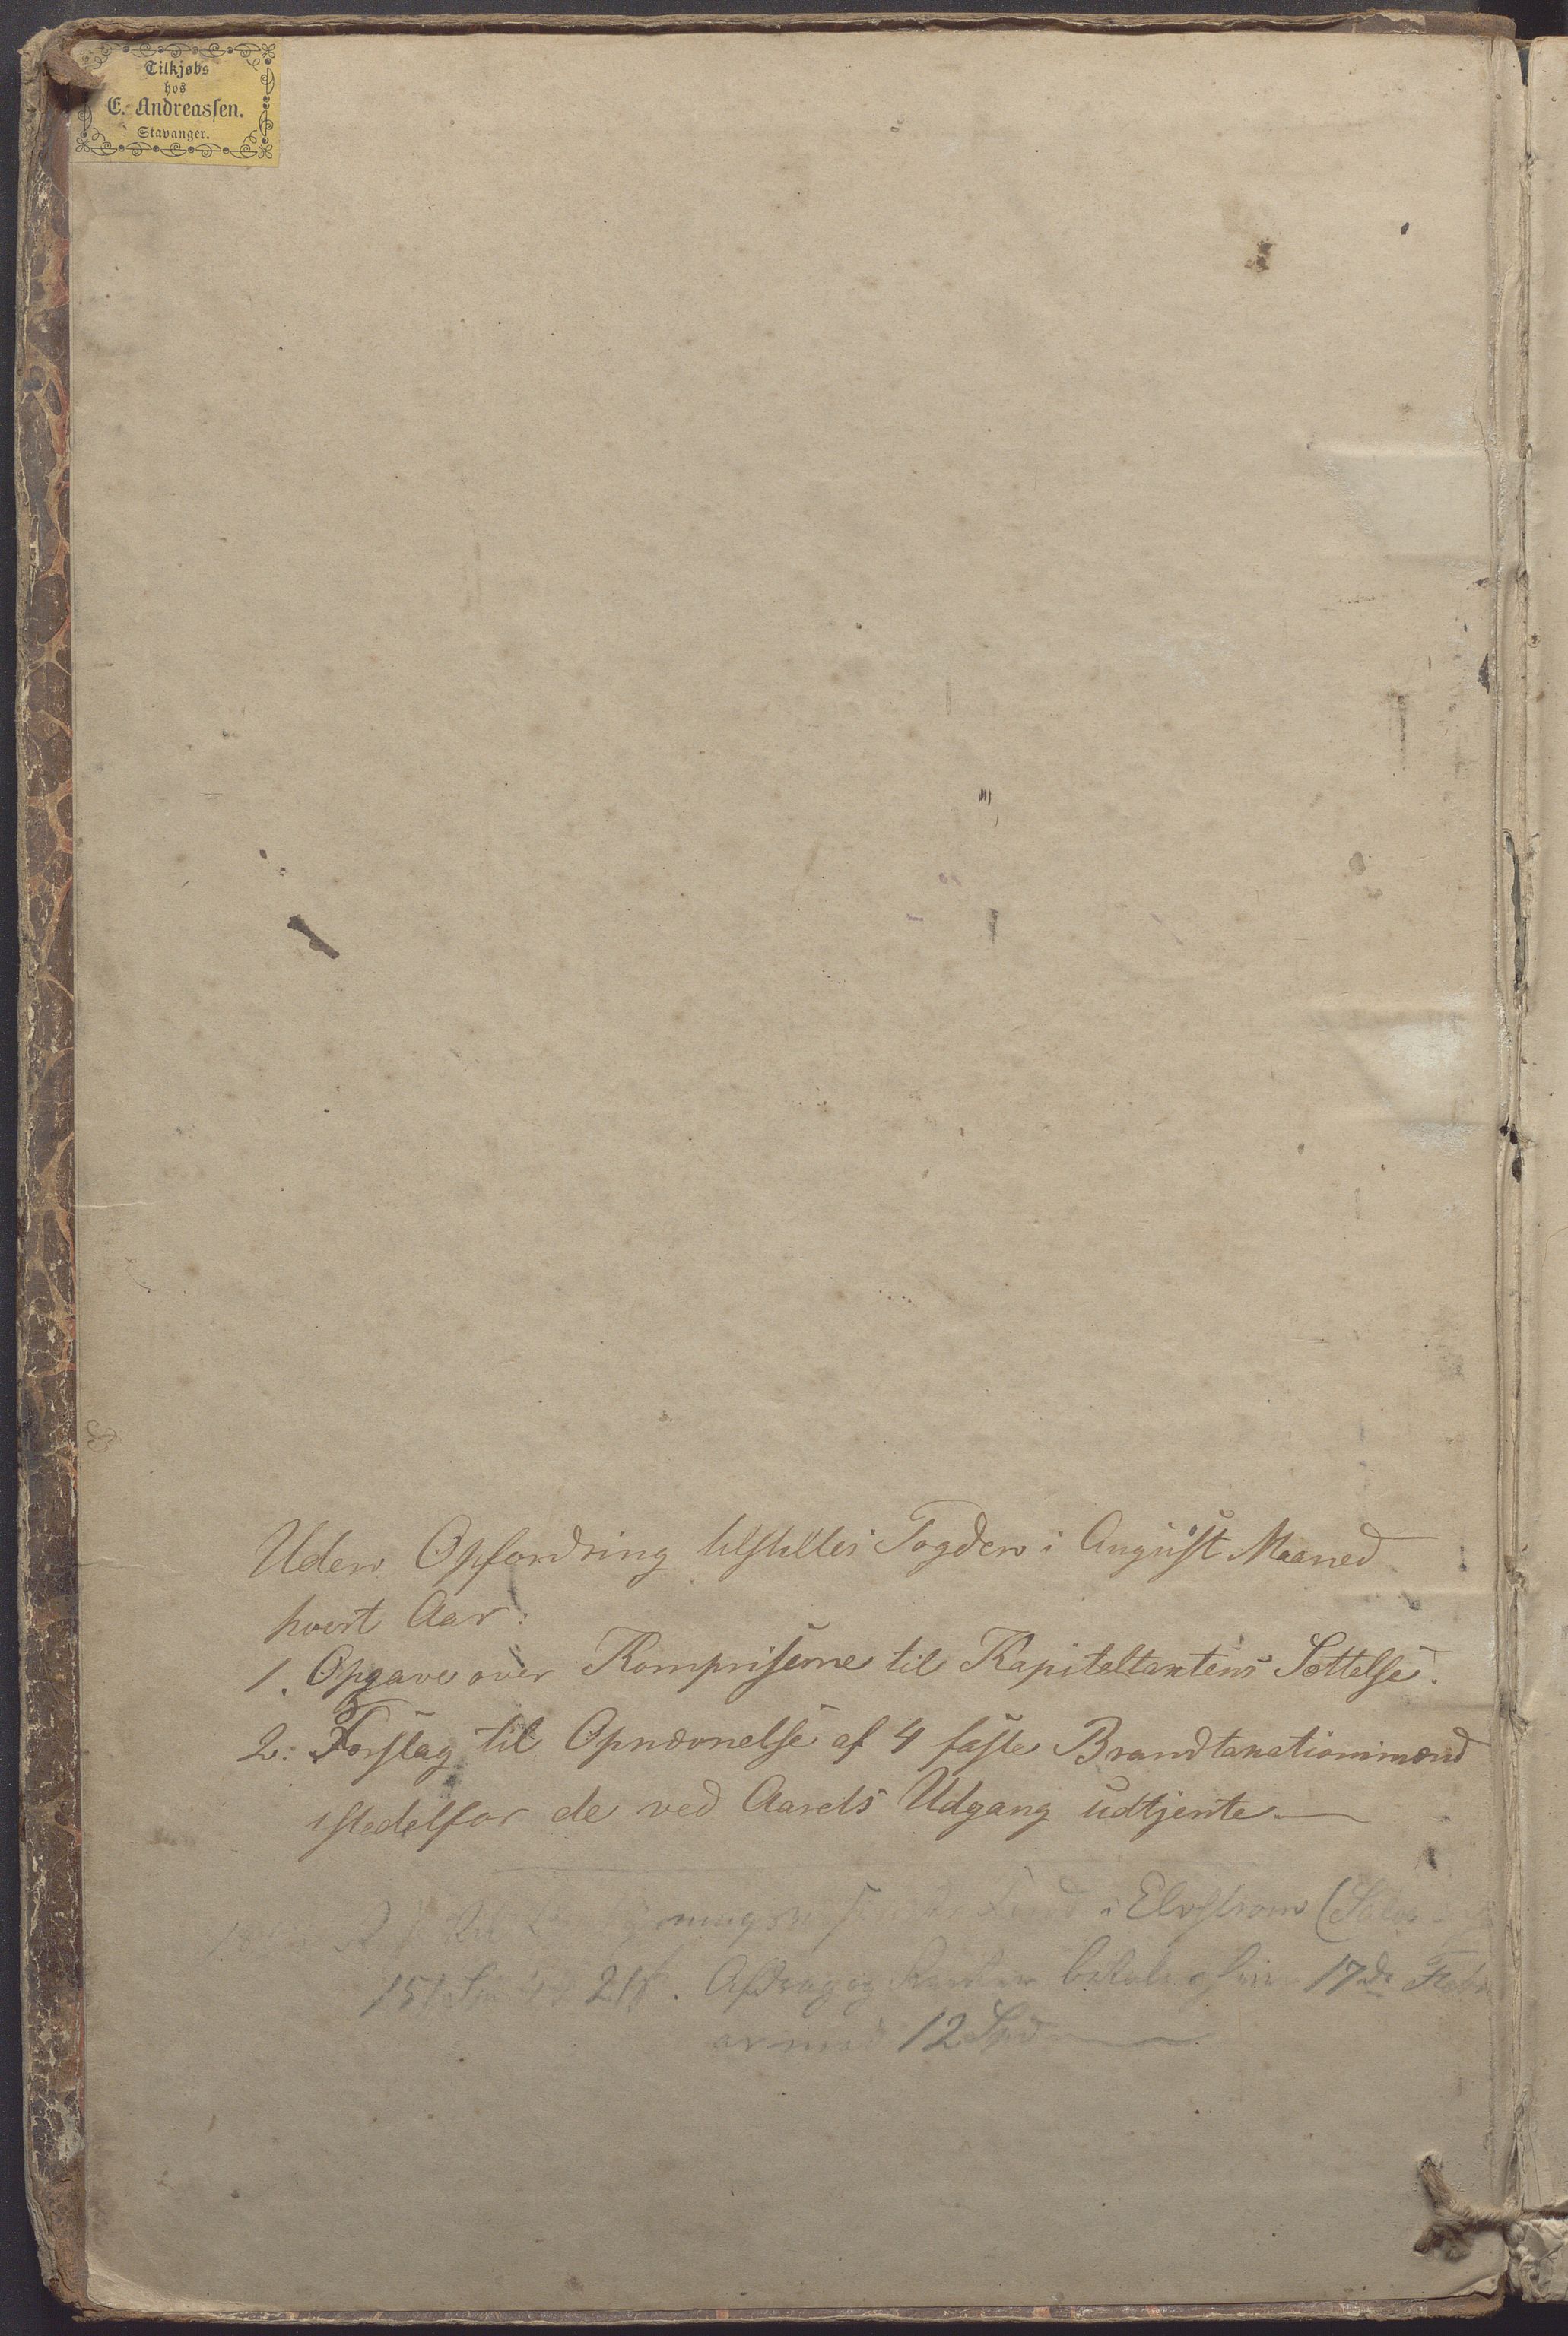 Tilkjøbs
hos
E. Andreassen.
Stavanger.
Uden Opfordring tilstilles Fogden i August Maaned
hvert Aar:
1. Opgave over Kornpriserne til Kapiteltaxtens Sættelse.
2. Forslag til Opnævnelse af 4 faste Brandtaxationsmænd
istedetfor de ved Aarets Udgang udtjente.
i Elvestrom
151 21 ß. Afdrag og Renter betales hver 17de
12 Spd